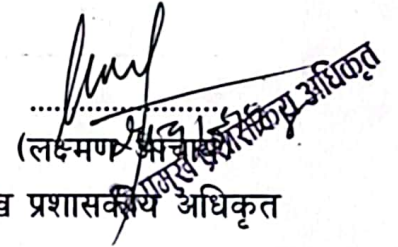 (लक्ष्मण आचार्य)
प्रमुख प्रशासकीय अधिकृत
ख प्रशासकीय अधिकृत